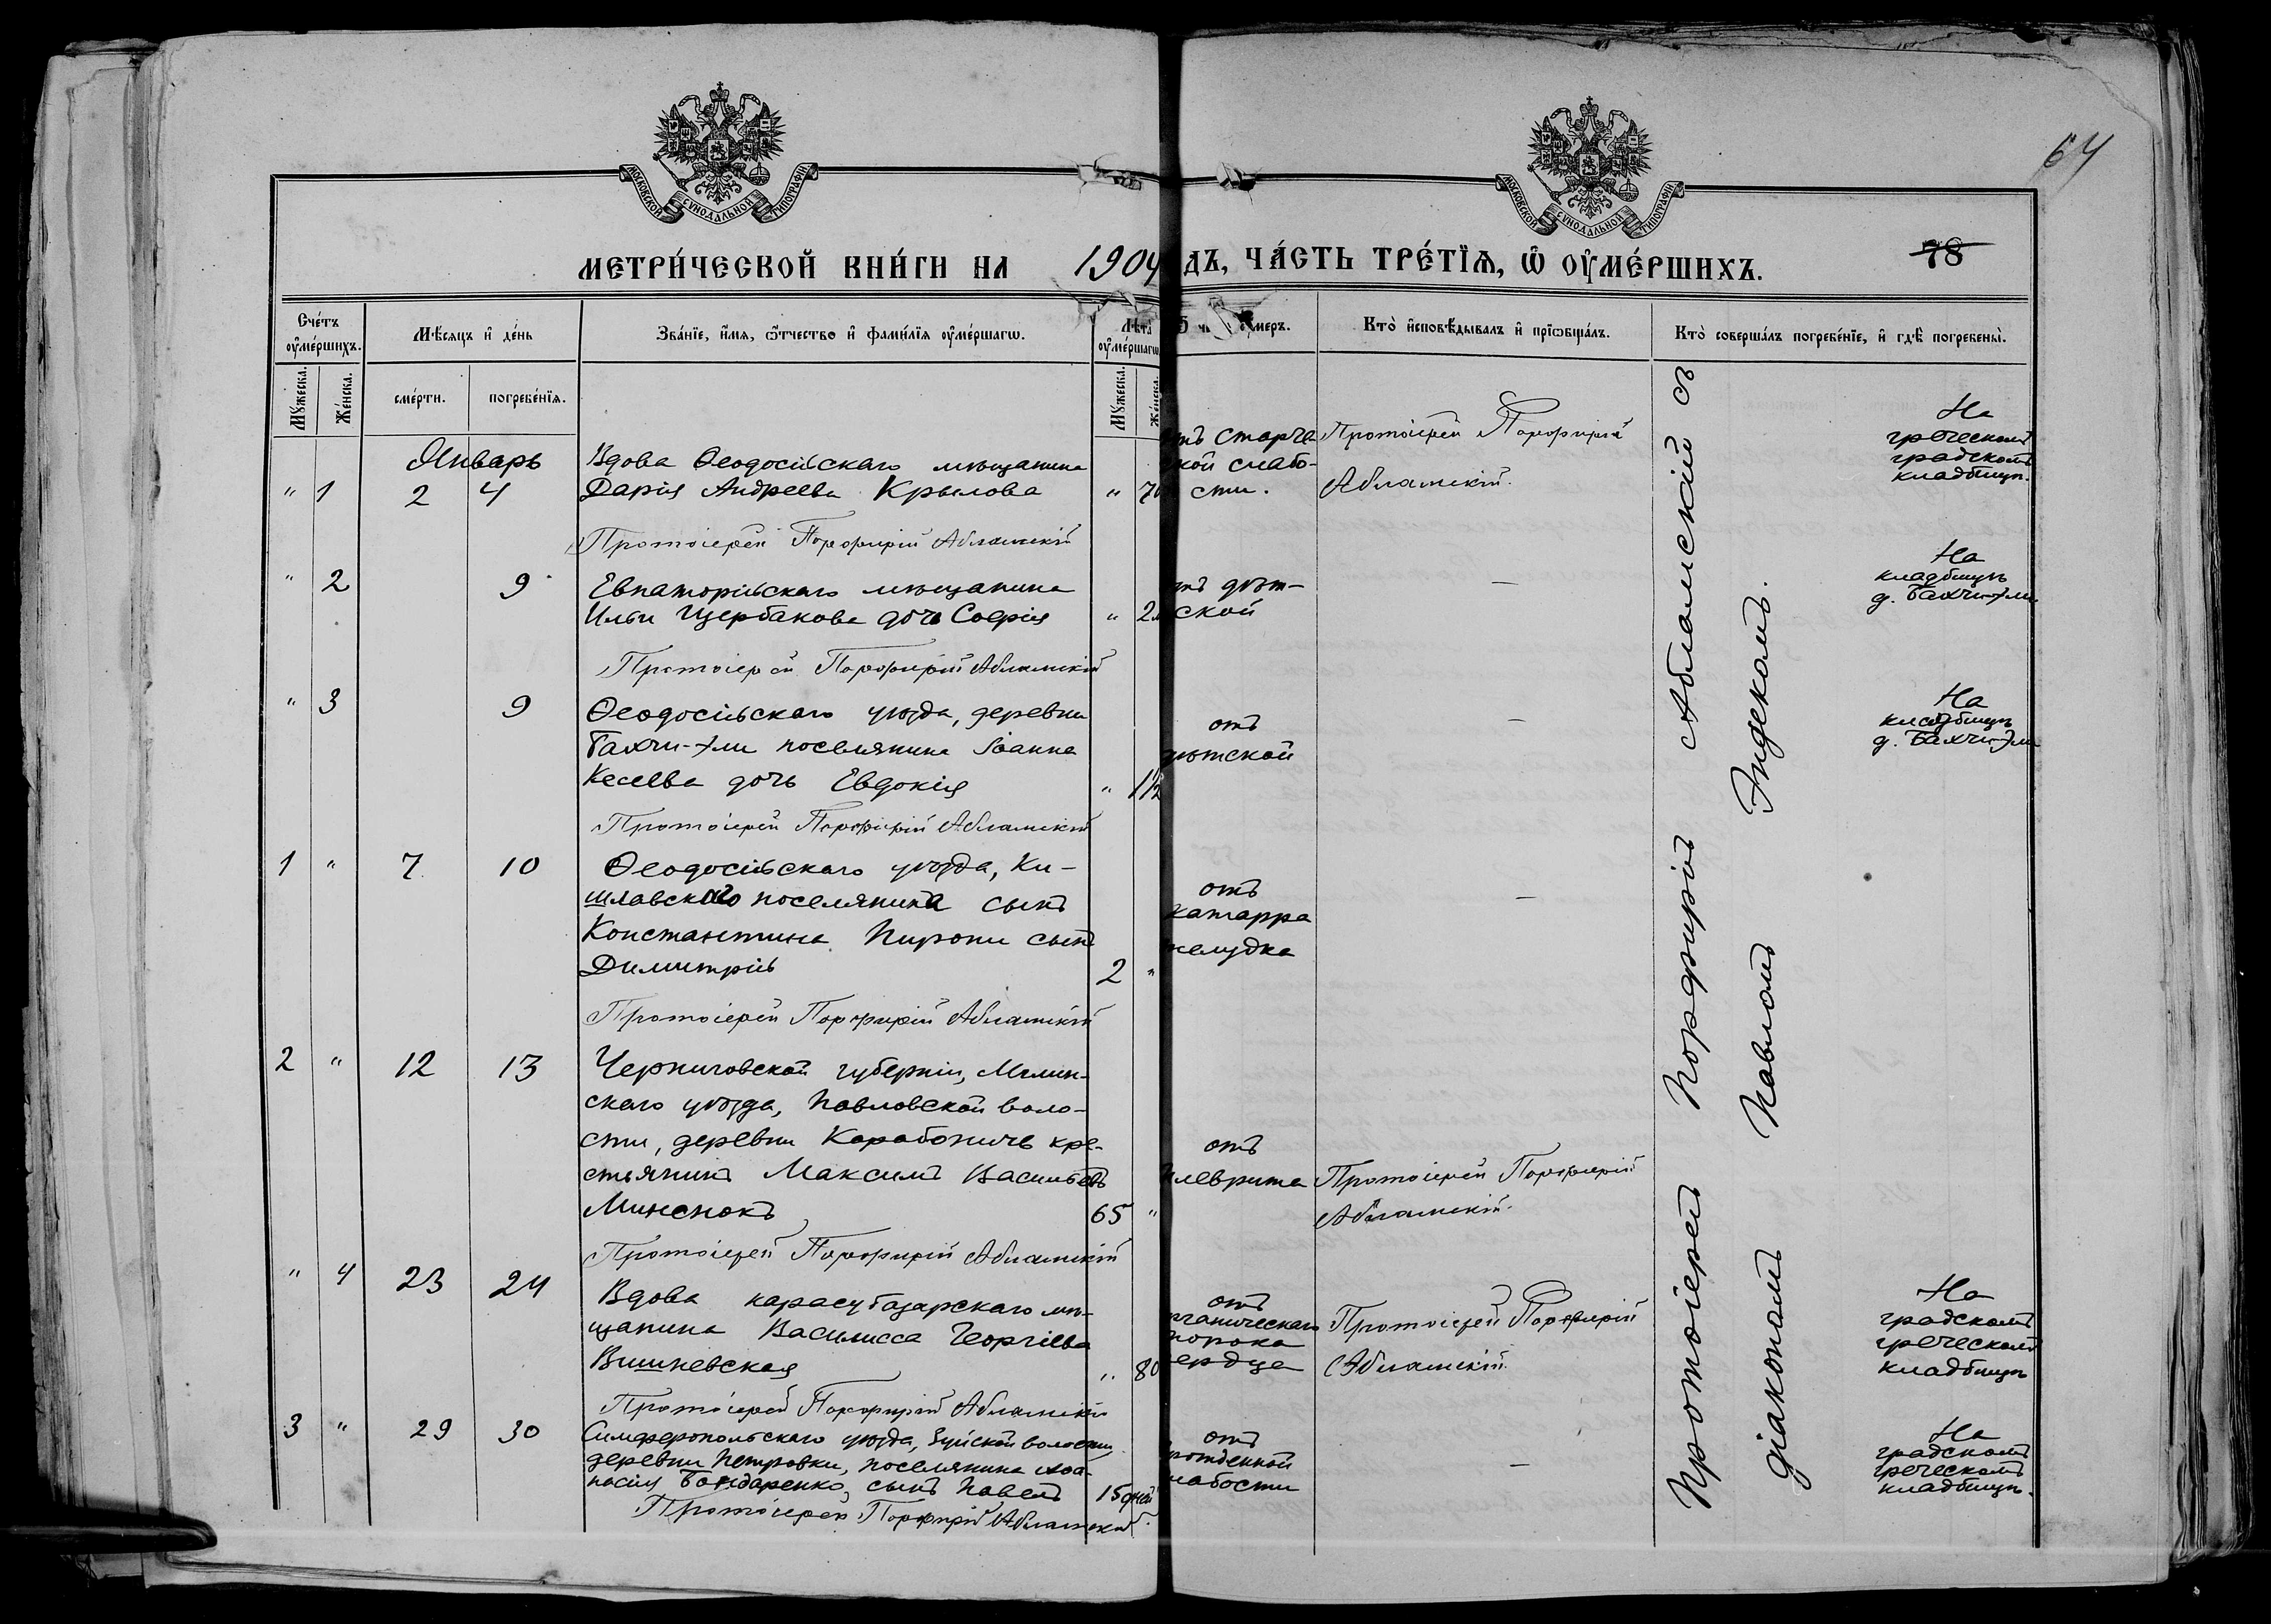 64
МОСКОВСКОЙ СѴНОДАЛЬНОЙ ТИПОГРАФІИ
МОСКОВСКОЙ СѴНОДАЛЬНОЙ ТИПОГРАФІИ
МЕТРИ́ЧЕСКОЙ КНИ́ГИ НА 1904
ДЪ, ЧА́СТЬ ТРЕ́ТЇѦ, Ѡ҆ ОУ҆МЕ́РШИХЪ.
78
Сче́тъ оу҆ме́ршихъ.
Мѣ́сѧцъ и҆ де́нь
Зва́нїе, и҆́мѧ, ѻ҆́тчество и҆ фами́лїѧ оу҆ме́ршагѡ.
Лѣта оу҆ме́ршагѡ
меръ.
Кто̀ и҆сповѣ́дывалъ и҆ прїѡбща́лъ.
Кто̀ соверша́лъ погребе́нїе, и҆ гдѣ̀ погребены̀.
Мꙋ́жеска.
Же́нска.
сме́рти.
погребе́нїѧ.
Мꙋ́жеска.
Же́нска.
Январь
" 1 2 4
Вдова Ѳеодосійскаго мѣщанина
Дарія Андреева Крылова " 70
Протоіерей Порфирій Абламскій
тъ старче
кой слабо-
сти.
Протоіерей Порфирій
Абламскій.
На
греческомъ
градскомъ
кладбищѣ.
" 2 9
Евпаторійскаго мѣщанина
Ильи Щербакова дочь Софія " 2
Протоіерей Порфирій Абламскій
тъ дѣт-
ской
—
На
кладбищѣ
д. Бахчи-Эли
" 3 9
Ѳеодосійскаго уѣзда, деревни
Бахчи-Эли поселянина Іоанна
Кесева дочь Евдокія " 1 1/2
Протоіерей Порфирій Абламскій
отъ
дѣтской
—
На
кладбищѣ
д. Бахчи-Эли
1 " 7 10
Ѳеодосійскаго уѣзда, Ки-
шлавскаго поселянина сынъ
Константина Пирони сынъ
Димитрій 2 "
Протоіерей Порфирій Абламскій
отъ
катарра
желудка
—
2 " 12 13
Черниговской губерніи, Мглин-
скаго уѣзда, Павловской воло-
сти, деревни Карабоничъ кре-
стьянинъ Максимъ Васильевъ
Миненокъ 65 "
Протоіерей Порфирій Абламскій
отъ
плеврита
Протоіерей Порфирій
Абламскій.
" 4 23 24
Вдова карасубазарскаго мѣ-
щанина Василисса Георгіева
Вишневская " 80
Протоіерей Порфирій Абламскій
отъ
рганическаго
порока
ердца
Протоіерей Порфирій
Абламскій.
На
градскомъ
греческомъ
кладбищѣ
3 " 29 30
Симферопольскаго уѣзда, Зуйской волости,
деревни Петровки, поселянина Аѳа-
насія Бондаренко, сынъ Павелъ 15 дней
Протоіерей Порфирій Абламскій.
отъ
рожденной
лабости
—
На
градскомъ
греческомъ
кладбищѣ.
Протоіерей Порфирій Абламскій съ
діакономъ Павломъ Эндекомъ.